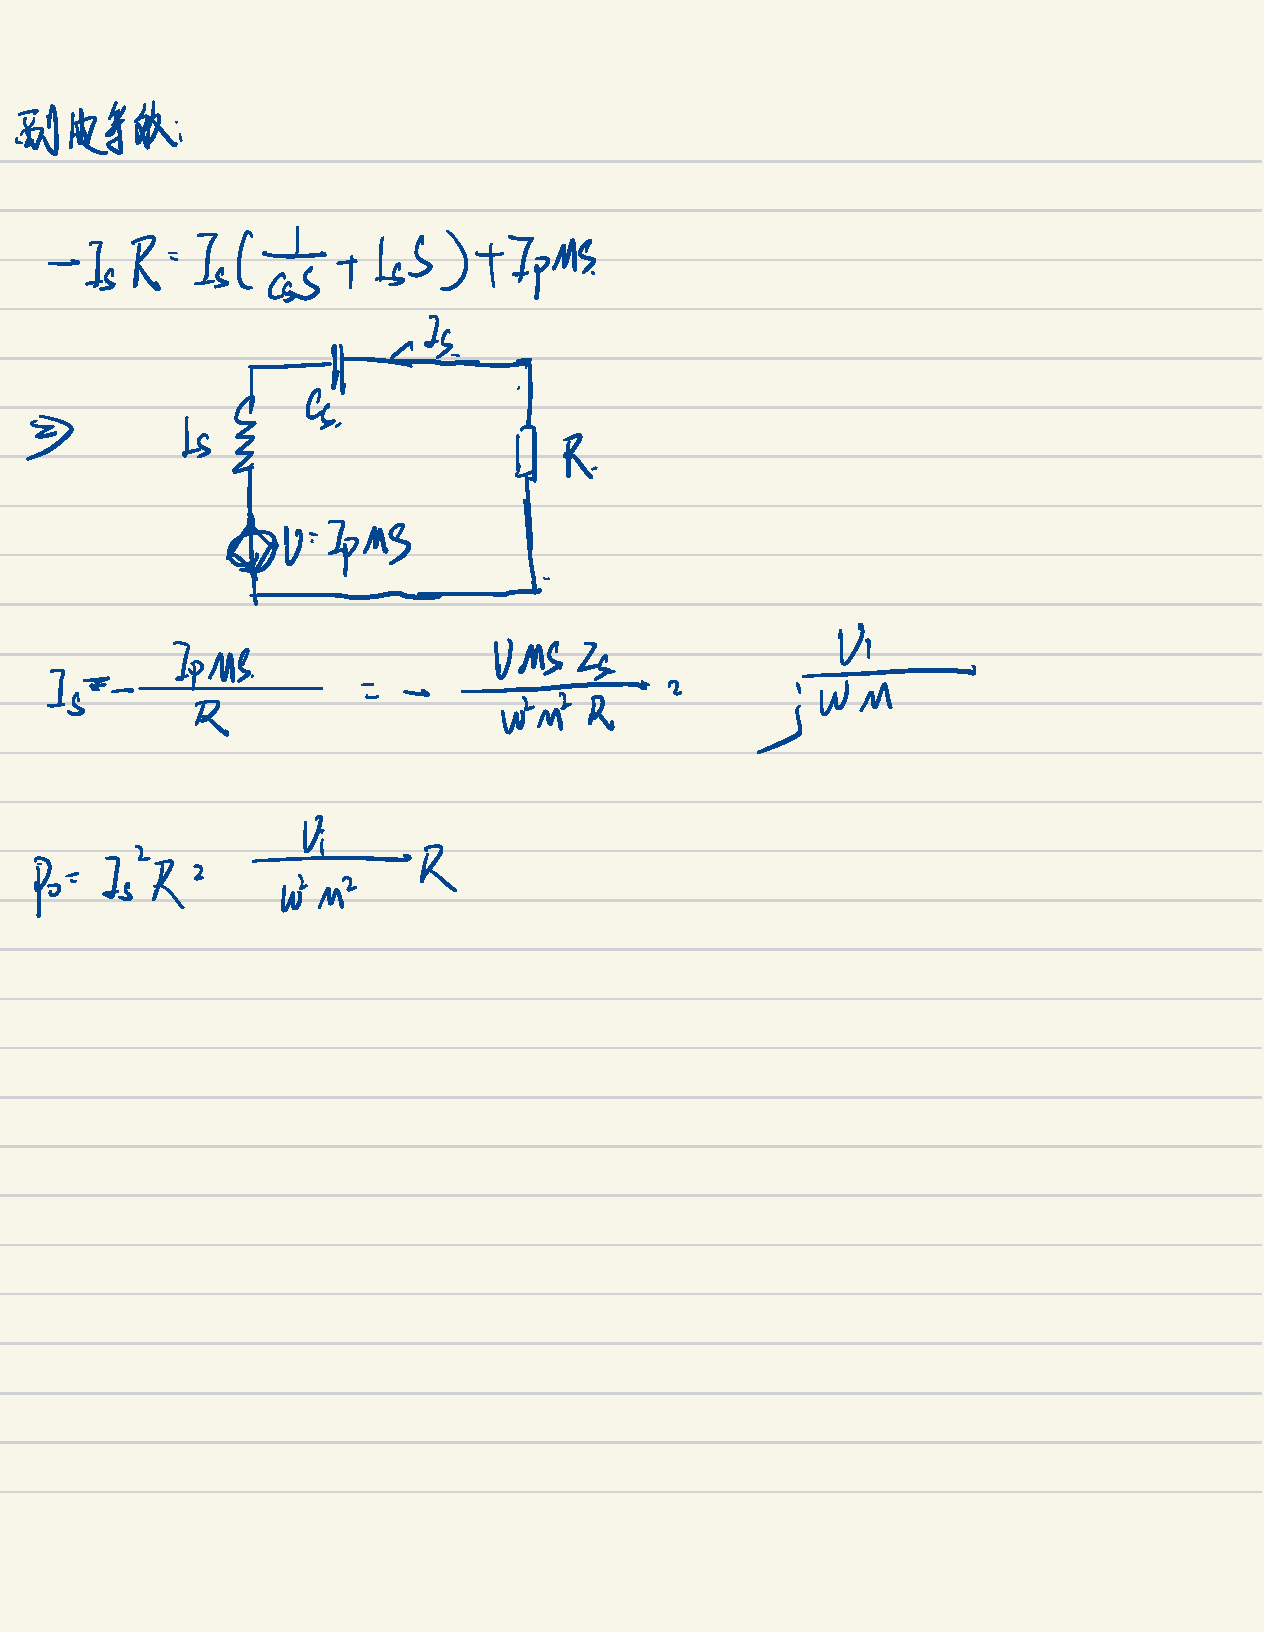 副边等效:
-I_s R = I_s ( \frac{1}{C_s S} + L_s S ) + I_p MS.
I_s
C_s
⇒ L_s R.
U = I_p MS
I_s = - \frac{I_p MS}{R} = - \frac{U MS Z_s}{w^2 M^2 R} = j \frac{U_i}{w M}
P_o = I_s^2 R = \frac{U_i}{w^2 M^2} R